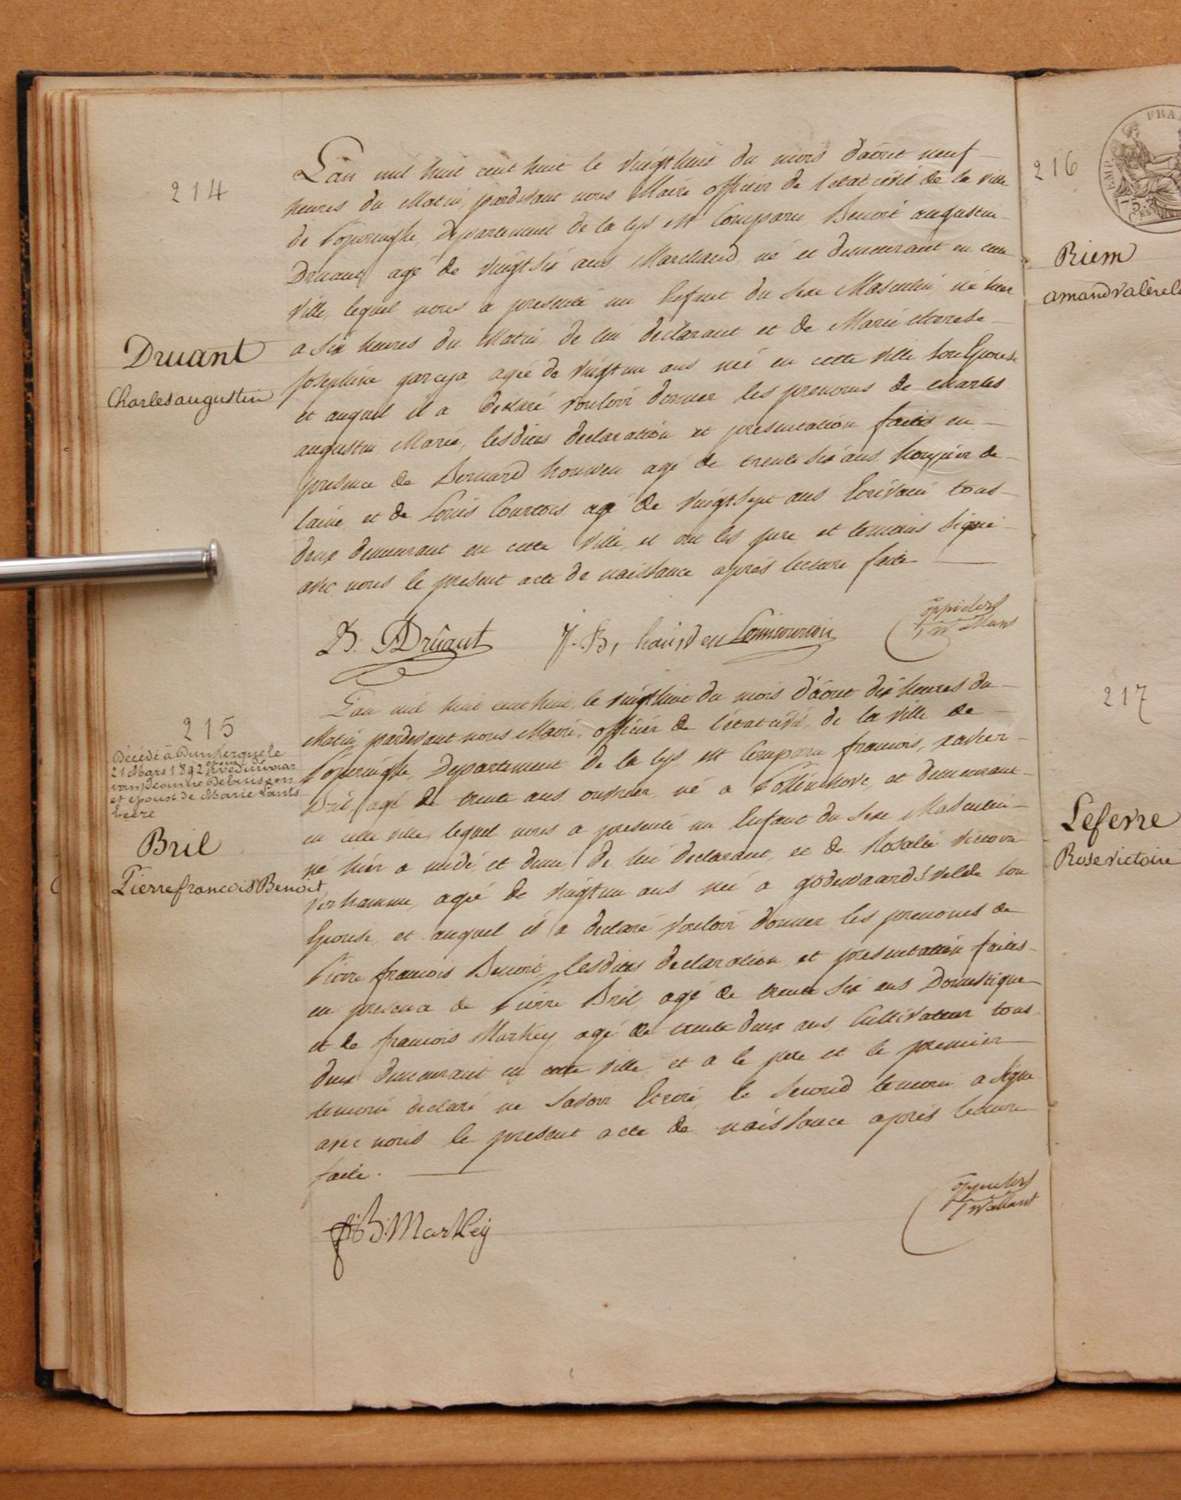 214
L'an mil huit cent huit le vingthuit du mois d'aout neuf
heures du Matin, pardevant nous Maire officier de l'etat civil de la ville
de Poperinghe, Departement de la lys est Comparu Benoit augustin
Druant, agé de vingt six ans Marchand né et demeurant en cette
ville, lequel nous a presenté un Enfant du Sexe Masculin né hier
a six heures du Matin de lui declarant et de Marie therese
Josephine garcya agée de vingt un ans née en cette ville son Epouse
et auquel il a declaré vouloir donner les prenoms de charles
augustin Marie, lesdites declaration et presentation faites en
presence de Bernard houwen agé de trente six ans
laine et de Louis Courtois agé de vingt sept ans Ecrivain tous
deux demeurant en cette ville, et ont les pere et temoins signé
avec nous le present acte de naissance après lecture faite
Druant
Charles augustin
B. Druant
Louis Courtois
215
Décédé à Dunkerque le
21 Mars 1842
et epoux de Marie
Bril
Pierre francois Benoit
L'an mil huit cent huit, le vingthuit du mois d'aout dix heures du
Matin, pardevant nous Maire, officier de l'etat civil de la ville de
Poperinghe, Departement de la lys est Comparu francois, xavier
Bril agé de trente ans ouvrier né a Pollinkove, et demeurant
en cette ville, lequel nous a presenté un Enfant du Sexe Masculin
né hier a midi et demi de lui declarant, et de Rosalie victoire
verhamme, agée de vingt un ans née a godewaardsvelde son
Epouse, et auquel il a declaré vouloir donner les prenoms de
Pierre francois Benoit, lesdites declaration et presentation faites
en presence de Pierre Bril agé de trente six ans Domestique
et de francois Markey agé de trente deux ans Cultivateur tous
deux demeurant en cette ville, et a le pere et le premier
temoin declaré ne Savoir Ecrire, le Second temoin a signé
avec nous le present acte de naissance après lecture
faite.
Markey
216
Riem
amand valere
217
Lefevre
Rose victoire